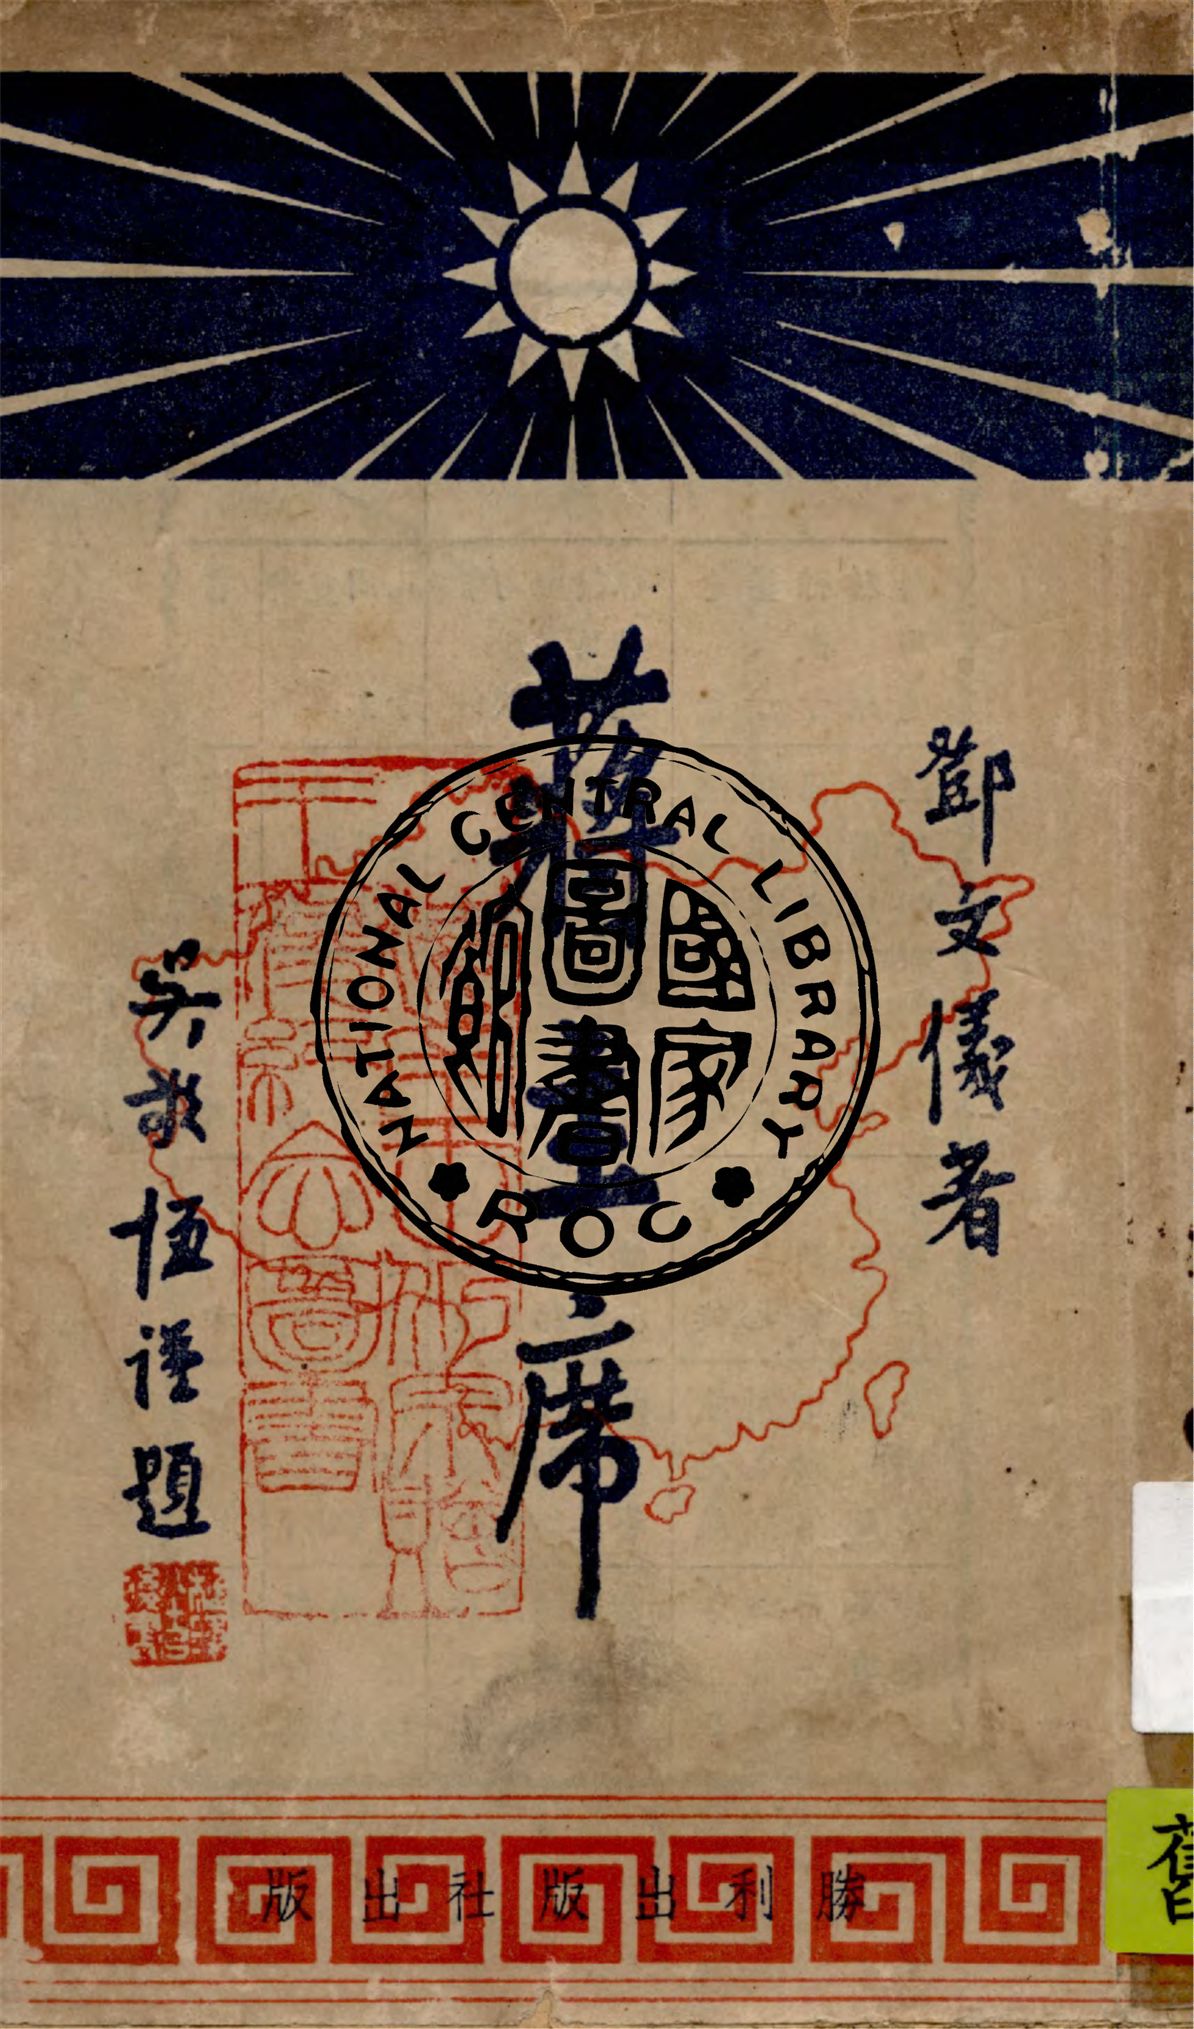 鄧文儀著
蔣主席
吳敬恆謹題
勝利出版社出版
NATIONAL CENTRAL LIBRARY
ROC
國家
圖書
館
舊